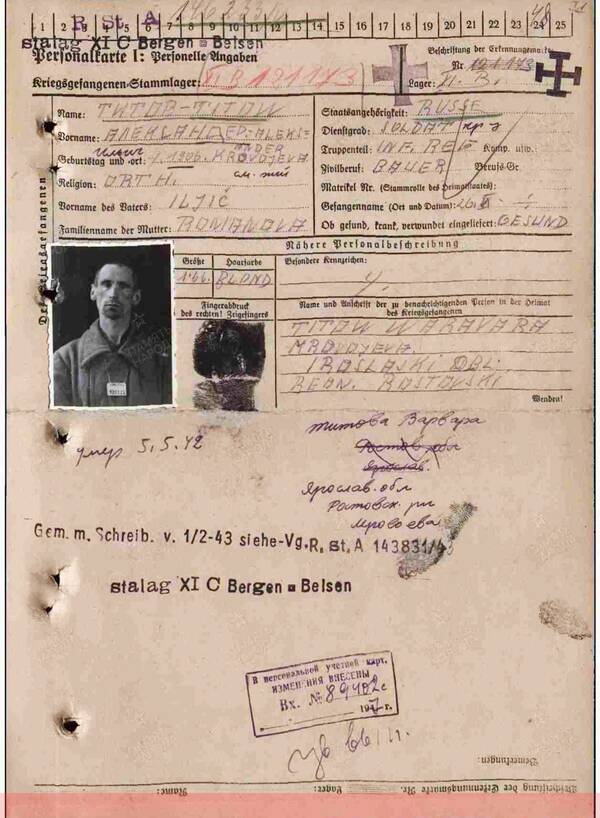 1 2 3 4 5 6 7 8 9 10 11 12 13 14 15 16 17 18 19 20 21 22 23 24 25
R St. A
stalag XI C Bergen - Belsen
Personalkarte I: Personelle Angaben
Beschriftung der Erkennungsmarke
Nr. 121173
Kriegsgefangenen-Stammlager: XI B 121173
Lager: XI. B.
Des Kriegsgefangenen
Name: ТИТОВ-TITOW
Staatsangehörigkeit: RUSSE
Vorname: АЛЕКСАНДЕР-ALEKSANDER
Dienstgrad: SOLDAT
Ильич
Truppenteil: INF. REG Komp. usw.
Geburtstag und -ort: 1906.
Zivilberuf: BAUER Berufs-Gr.
Religion: ORTH.
Matrikel Nr. (Stammrolle des Heimatstaates):
Vorname des Vaters: ILJIČ
Gefangennahme (Ort und Datum):
Familienname der Mutter: ROMANOVA
Ob gesund, krank, verwundet eingeliefert: GESUND
Nähere Personalbeschreibung
Größe Haarfarbe Besondere Kennzeichen:
1.66. BLOND
Fingerabdruck
des rechten! Zeigefingers
Name und Anschrift der zu benachrichtigenden Person in der Heimat
des Kriegsgefangenen
TITOW WARVARA
MROVOJEVA.
IROSLASKI OBL.
REON. ROSTOVSKI
Wenden!
умер 5.5.42
титова Варвара
Ростов. обл
Ярослав.
Ярослав. обл
Ростовск. рн
Мровоева
Gem. m. Schreib. v. 1/2-43 siehe-Vg. R. St. A 143831/43
stalag XI C Bergen - Belsen
В персональной учетной карт.
ИЗМЕНИЯ ВНЕСЕНЫ
Вх. № 89402с
194 г.
Bemerkungen:
Beschriftung der Erkennungsmarke Nr. Lager: Name: